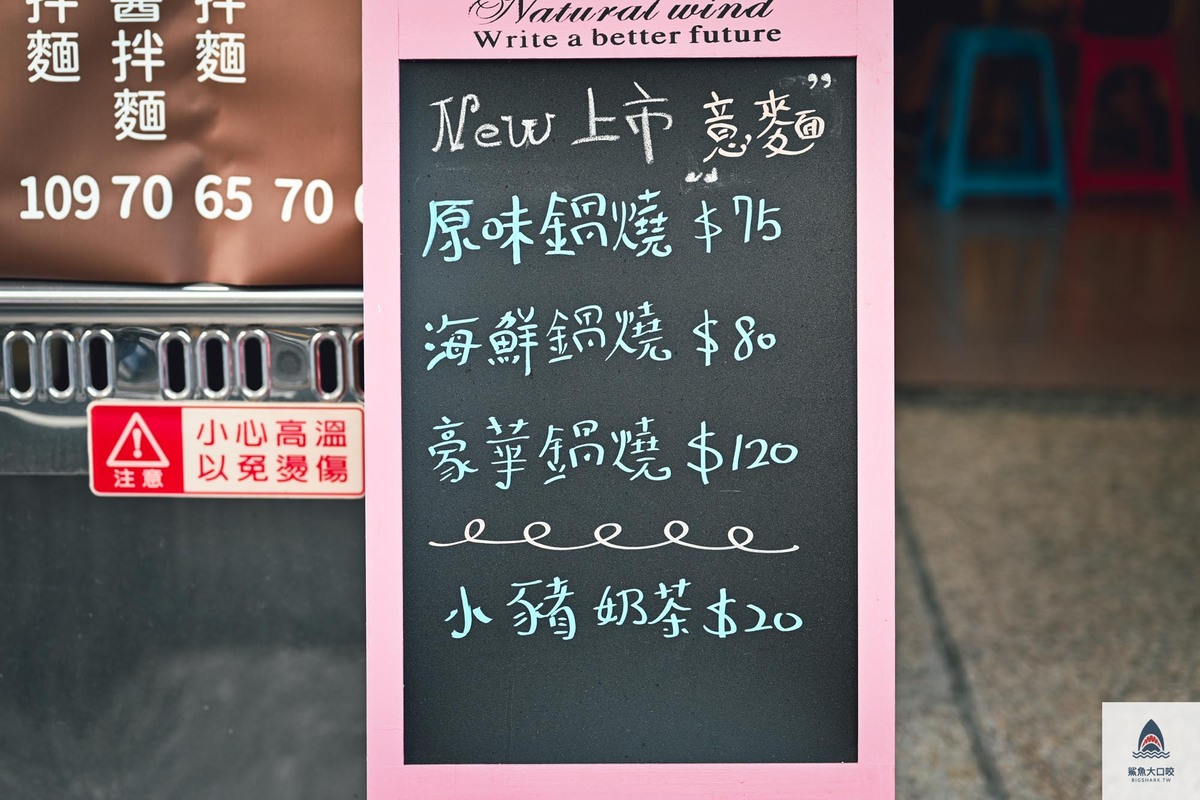 醬
拌 拌 拌
麵 拌 麵
麵
109 70 65 70
小心高溫
以免燙傷
注意
Natural wind
Write a better future
New 上市 意麵
原味鍋燒 $75
海鮮鍋燒 $80
豪華鍋燒 $120
小豬奶茶 $20
鯊魚大口咬
BIGSHARK.TW